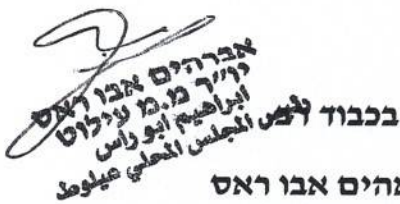 אברהים אבו ראס
יו״ר מ.מ עילוט
ابراهيم ابو راس
المجلس المحلي عيلوط
בכבוד
אבו ראס